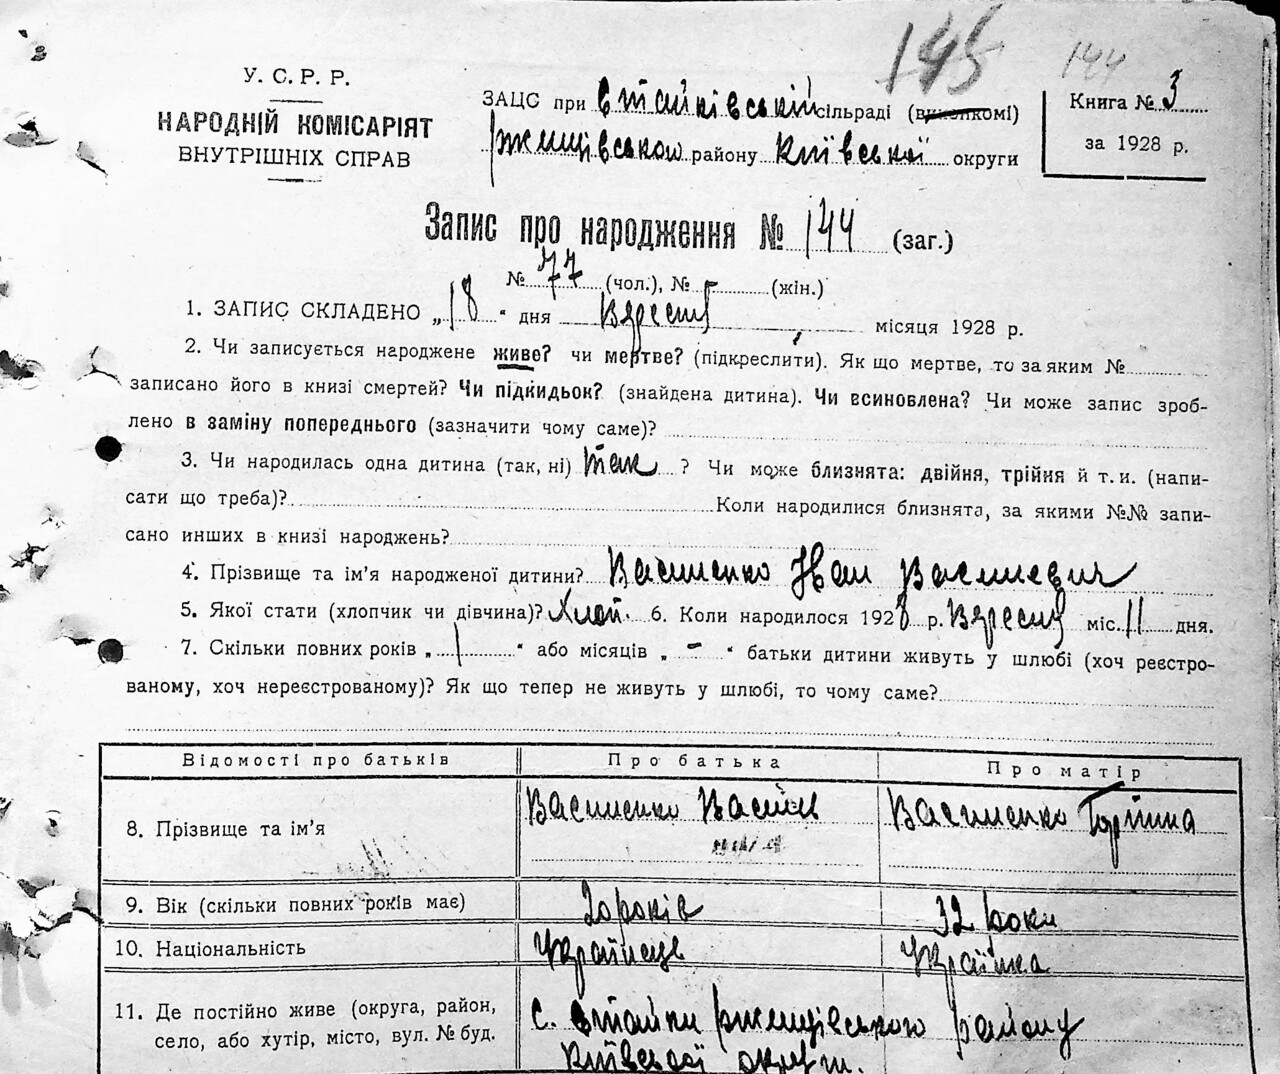 145 144
У. С. Р. Р.
НАРОДНІЙ КОМІСАРІЯТ
ВНУТРІШНІХ СПРАВ
ЗАЦС при Стайківській сільраді (виконкомі)
Ржищівського району Київської округи
Книга № 3
за 1928 р.
Запис про народження № 144 (заг.)
№ 77 (чол.), № - (жін.)
1. ЗАПИС СКЛАДЕНО „18“ дня Вересня місяця 1928 р.
2. Чи записується народжене живе? чи мертве? (підкреслити). Як що мертве, то за яким №
записано його в книзі смертей? Чи підкидьок? (знайдена дитина). Чи всиновлена? Чи може запис зроб-
лено в заміну попереднього (зазначити чому саме)?
3. Чи народилась одна дитина (так, ні) так ? Чи може близнята: двійня, трійня й т. и. (напи-
сати що треба)? Коли народилися близнята, за якими №№ запи-
сано инших в книзі народжень?
4. Прізвище та ім’я народженої дитини? Василенко Иван Василевич
5. Якої стати (хлопчик чи дівчина)? Хлоп. 6. Коли народилося 1928 р. Вересня міс. 11 дня.
7. Скільки повних років „ 1 “ або місяців „ - “ батьки дитини живуть у шлюбі (хоч реєстро-
ваному, хоч нереєстрованому)? Як що тепер не живуть у шлюбі, то чому саме?
Відомості про батьків Про батька Про матір
8. Прізвище та ім’я Василенко Василь Василенко
9. Вік (скільки повних років має) 20 років 32 роки
10. Національність Українець Українка
11. Де постійно живе (округа, район, с. Стайки Ржищівського району
село, або хутір, місто, вул. № буд. Київської округи.